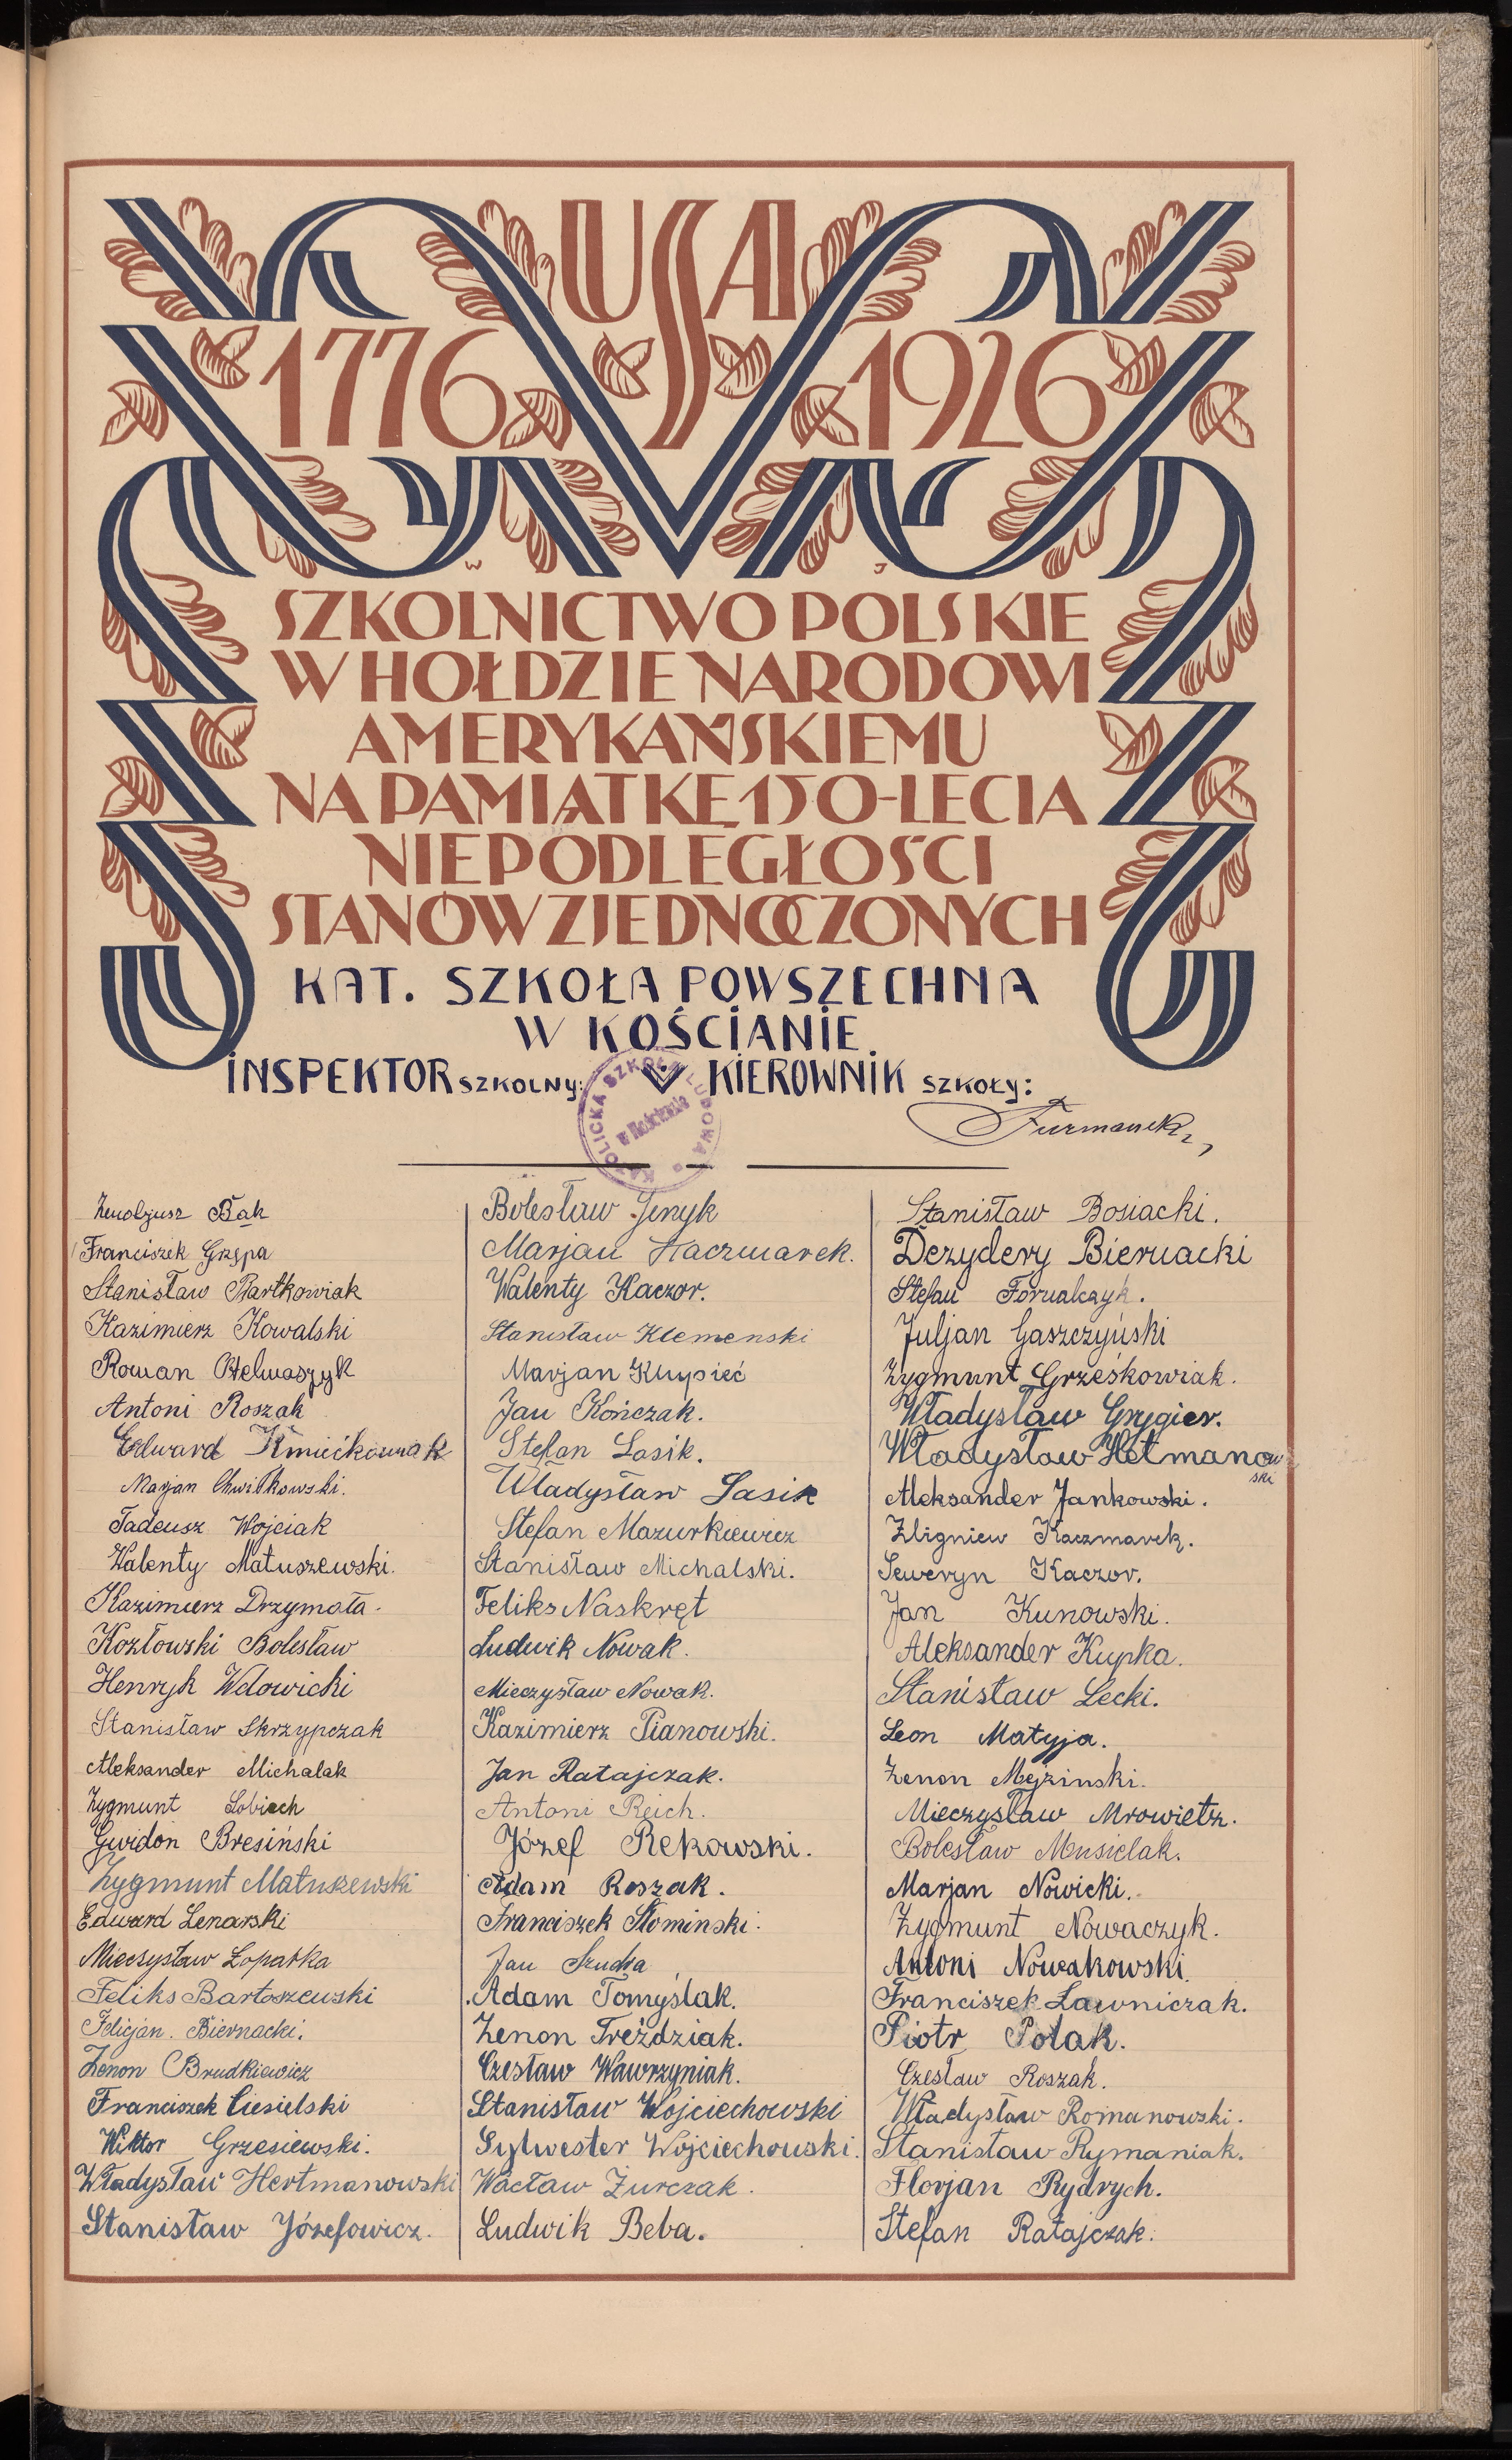 USA
1776 1926
W J
SZKOLNICTWO POLSKIE
W HOŁDZIE NARODOWI
AMERYKAŃSKIEMU
NA PAMIĄTKE 150-LECIA
NIEPODLEGŁOŚCI
STANÓW ZJEDNOCZONYCH
KAT. SZKOŁA POWSZECHNA
W KOŚCIANIE
INSPEKTOR SZKOLNY: KIEROWNIK SZKOŁY:
KATOLICKA SZKOŁA LUDOWA
w Kościanie
Furmanek
Zenobjusz Bąk
Franciszek Grzępa
Stanisław Bartkowiak
Kazimierz Kowalski
Roman
Antoni Roszak
Edward Kmiećkowiak
Marjan Chwiłkowski.
Tadeusz Wojciak
Walenty Matuszewski.
Kazimierz Drzymała.
Kozłowski Bolesław
Henryk Wdowicki
Stanisław Skrzypczak
Aleksander Michalak
Zygmunt Łobiech
Gwidon Bresiński
Zygmunt Matuszewski
Edward Lenarski
Mieczysław Łopatka
Feliks Bartoszewski
Felicjan. Biernacki.
Zenon Brudkiewicz
Franciszek Ciesielski
Wiktor Grzesiewski.
Władysław Hertmanowski
Stanisław Józefowicz.
Bolesław Jenyk
Marjan Kaczmarek.
Walenty Kaczor.
Stanisław Klemenski
Marjan Klupieć
Jan Kończak.
Stefan Lasik.
Władysław Lasik
Stefan Mazurkiewicz
Stanisław Michalski.
Feliks Naskręt
Ludwik Nowak.
Mieczysław Nowak.
Kazimierz Pianowski.
Jan Ratajczak.
Antoni Reich.
Józef Rękowski.
Adam Roszak.
Franciszek Słominski.
Jan Szudra
Adam Tomyślak.
Zenon Treździak.
Czesław Wawrzyniak.
Stanisław Wojciechowski
Sylwester Wojciechowski.
Wacław Żurczak.
Ludwik Beba.
Stanisław Bosiacki.
Dezydery Biernacki
Stefan Fornalczyk.
Juljan Gaszczyński
Zygmunt Grześkowiak.
Władysław Grygier.
Władysław Hetmanowski
Aleksander Jankowski.
Zbigniew Kaczmarek.
Seweryn Kaczor.
Jan Kunowski.
Aleksander Kupka.
Stanisław Lecki.
Leon Matyja.
Zenon Mężinski.
Mieczysław Mrowietz.
Bolesław Musielak.
Marjan Nowicki.
Zygmunt Nowaczyk.
Antoni Nowakowski.
Franciszek Ławniczak.
Piotr Polak.
Czesław Roszak.
Władysław Romanowski.
Stanisław Rymaniak.
Florjan Rydrych.
Stefan Ratajczak.